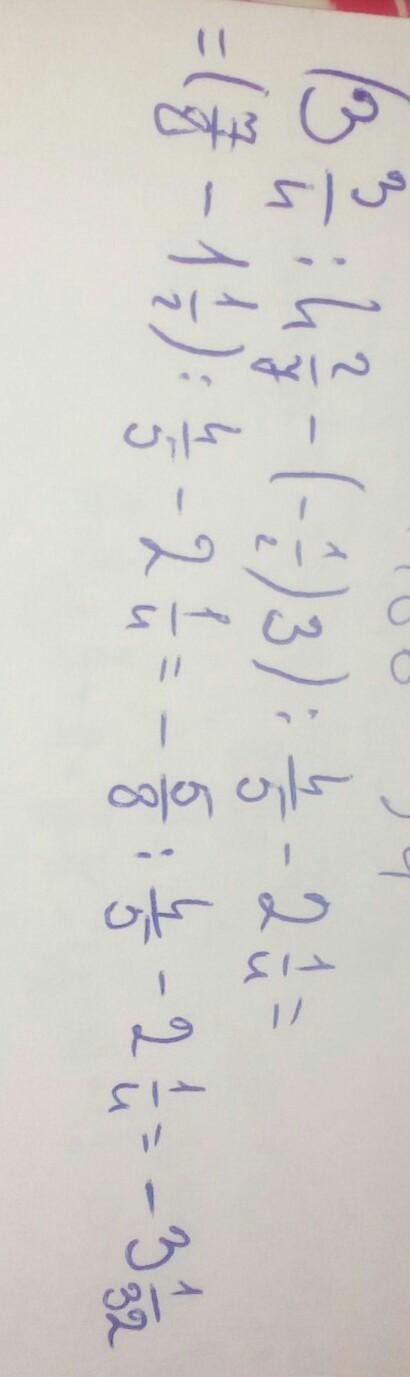 (3 3/4 : 4 2/7 - (-1/2) 3) : 4/5 - 2 1/4 =
= (7/8 - 1 1/2) : 4/5 - 2 1/4 = - 5/8 : 4/5 - 2 1/4 = - 3 1/32